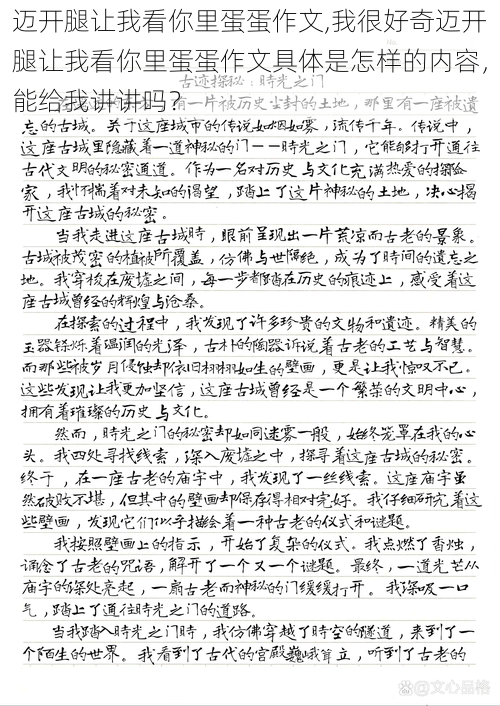 迈开腿让我看你里蛋蛋作文,我很好奇迈开
腿让我看你里蛋蛋作文具体是怎样的内容,
能给我讲讲吗?
古迹探秘：時光之门
有一片被历史尘封的土地，那里有一座被遗
忘的古城。关于这座城市的传说如烟如雾，流传千年。传说中，
这座古城里隐藏着一道神秘的门——時光之门，它能够打开通往
古代文明的秘密通道。作为一名对历史与文化充满热爱的探险
家，我怀揣着对未知的渴望，踏上了这片神秘的土地，决心揭
开这座古城的秘密。
当我走进这座古城時，眼前呈现出一片荒凉而古老的景象。
古城被茂密的植被所覆盖，仿佛与世隔绝，成为了時间的遗忘之
地。我穿梭在废墟之间，每一步都踏在历史的痕迹上，感受着这
座古城曾经的辉煌与沧桑。
在探索的过程中，我发现了许多珍贵的文物和遗迹。精美的
玉器铄烁着温润的光泽，古朴的陶器诉说着古老的工艺与智慧。
而那些被岁月侵蚀却依旧栩栩如生的壁画，更是让我惊叹不已。
这些发现让我更加坚信，这座古城曾经是一个繁荣的文明中心，
拥有着璀璨的历史与文化。
然而，時光之门的秘密却如同迷雾一般，始终笼罩在我的心
头。我四处寻找线索，深入废墟之中，探寻着这座古城的秘密。
终于，在一座古老的庙宇中，我发现了一丝线索。这座庙宇虽
然破败不堪，但其中的壁画却保存得相对完好。我仔细研究着这
些壁画，发现它们似乎描绘着一种古老的仪式和谜题。
我按照壁画上的指示，开始了复杂的仪式。我点燃了香烛，
诵念了古老的咒语，解开了一个又一个谜题。最终，一道光芒从
庙宇的深处亮起，一扇古老而神秘的门缓缓打开。我深吸一口
气，踏上了通往時光之门的道路。
当我踏入時光之门時，我仿佛穿越了時空的隧道，来到了一
个陌生的世界。我看到了古代的宫殿巍峨耸立，听到了古老的
@文心品格